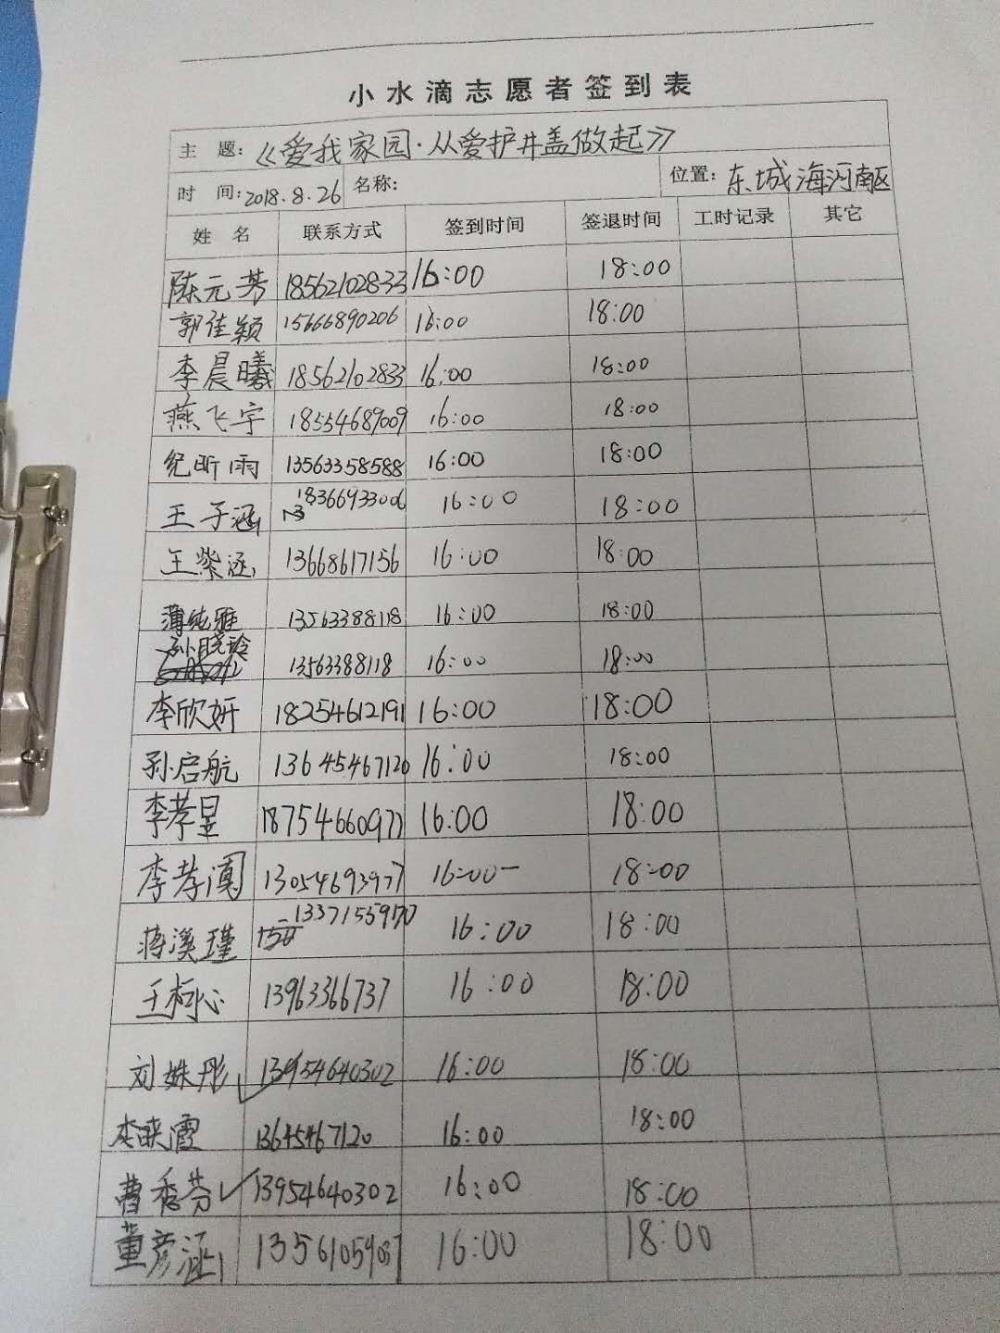 小水滴志愿者签到表
主 题: 《爱我家园·从爱护井盖做起》
时 间: 2018.8.26 名称: 位置: 东城海河南区
姓 名 联系方式 签到时间 签退时间 工时记录 其它
陈元芳 18562102833 16:00 18:00
郭佳颖 15666890206 16:00 18:00
李晨曦 18562102833 16:00 18:00
燕飞宇 18554689009 16:00 18:00
纪昕雨 13563358588 16:00 18:00
王子涵 18366933006 16:00 18:00
王紫涵 13668617156 16:00 18:00
薄纯雅 13563388118 16:00 18:00
孙晓玲 13563388118 16:00 18:00
李欣妍 18254612191 16:00 18:00
孙启航 13645467120 16:00 18:00
李孝昱 18754660977 16:00 18:00
李孝阗 13054693977 16:00 18:00
蒋溪瑾 13371559170 16:00 18:00
王柯心 13963366737 16:00 18:00
刘姝彤 13954640302 16:00 18:00
李映霞 13645467120 16:00 18:00
曹秀芬 13954640302 16:00 18:00
董彦涵 13561059087 16:00 18:00